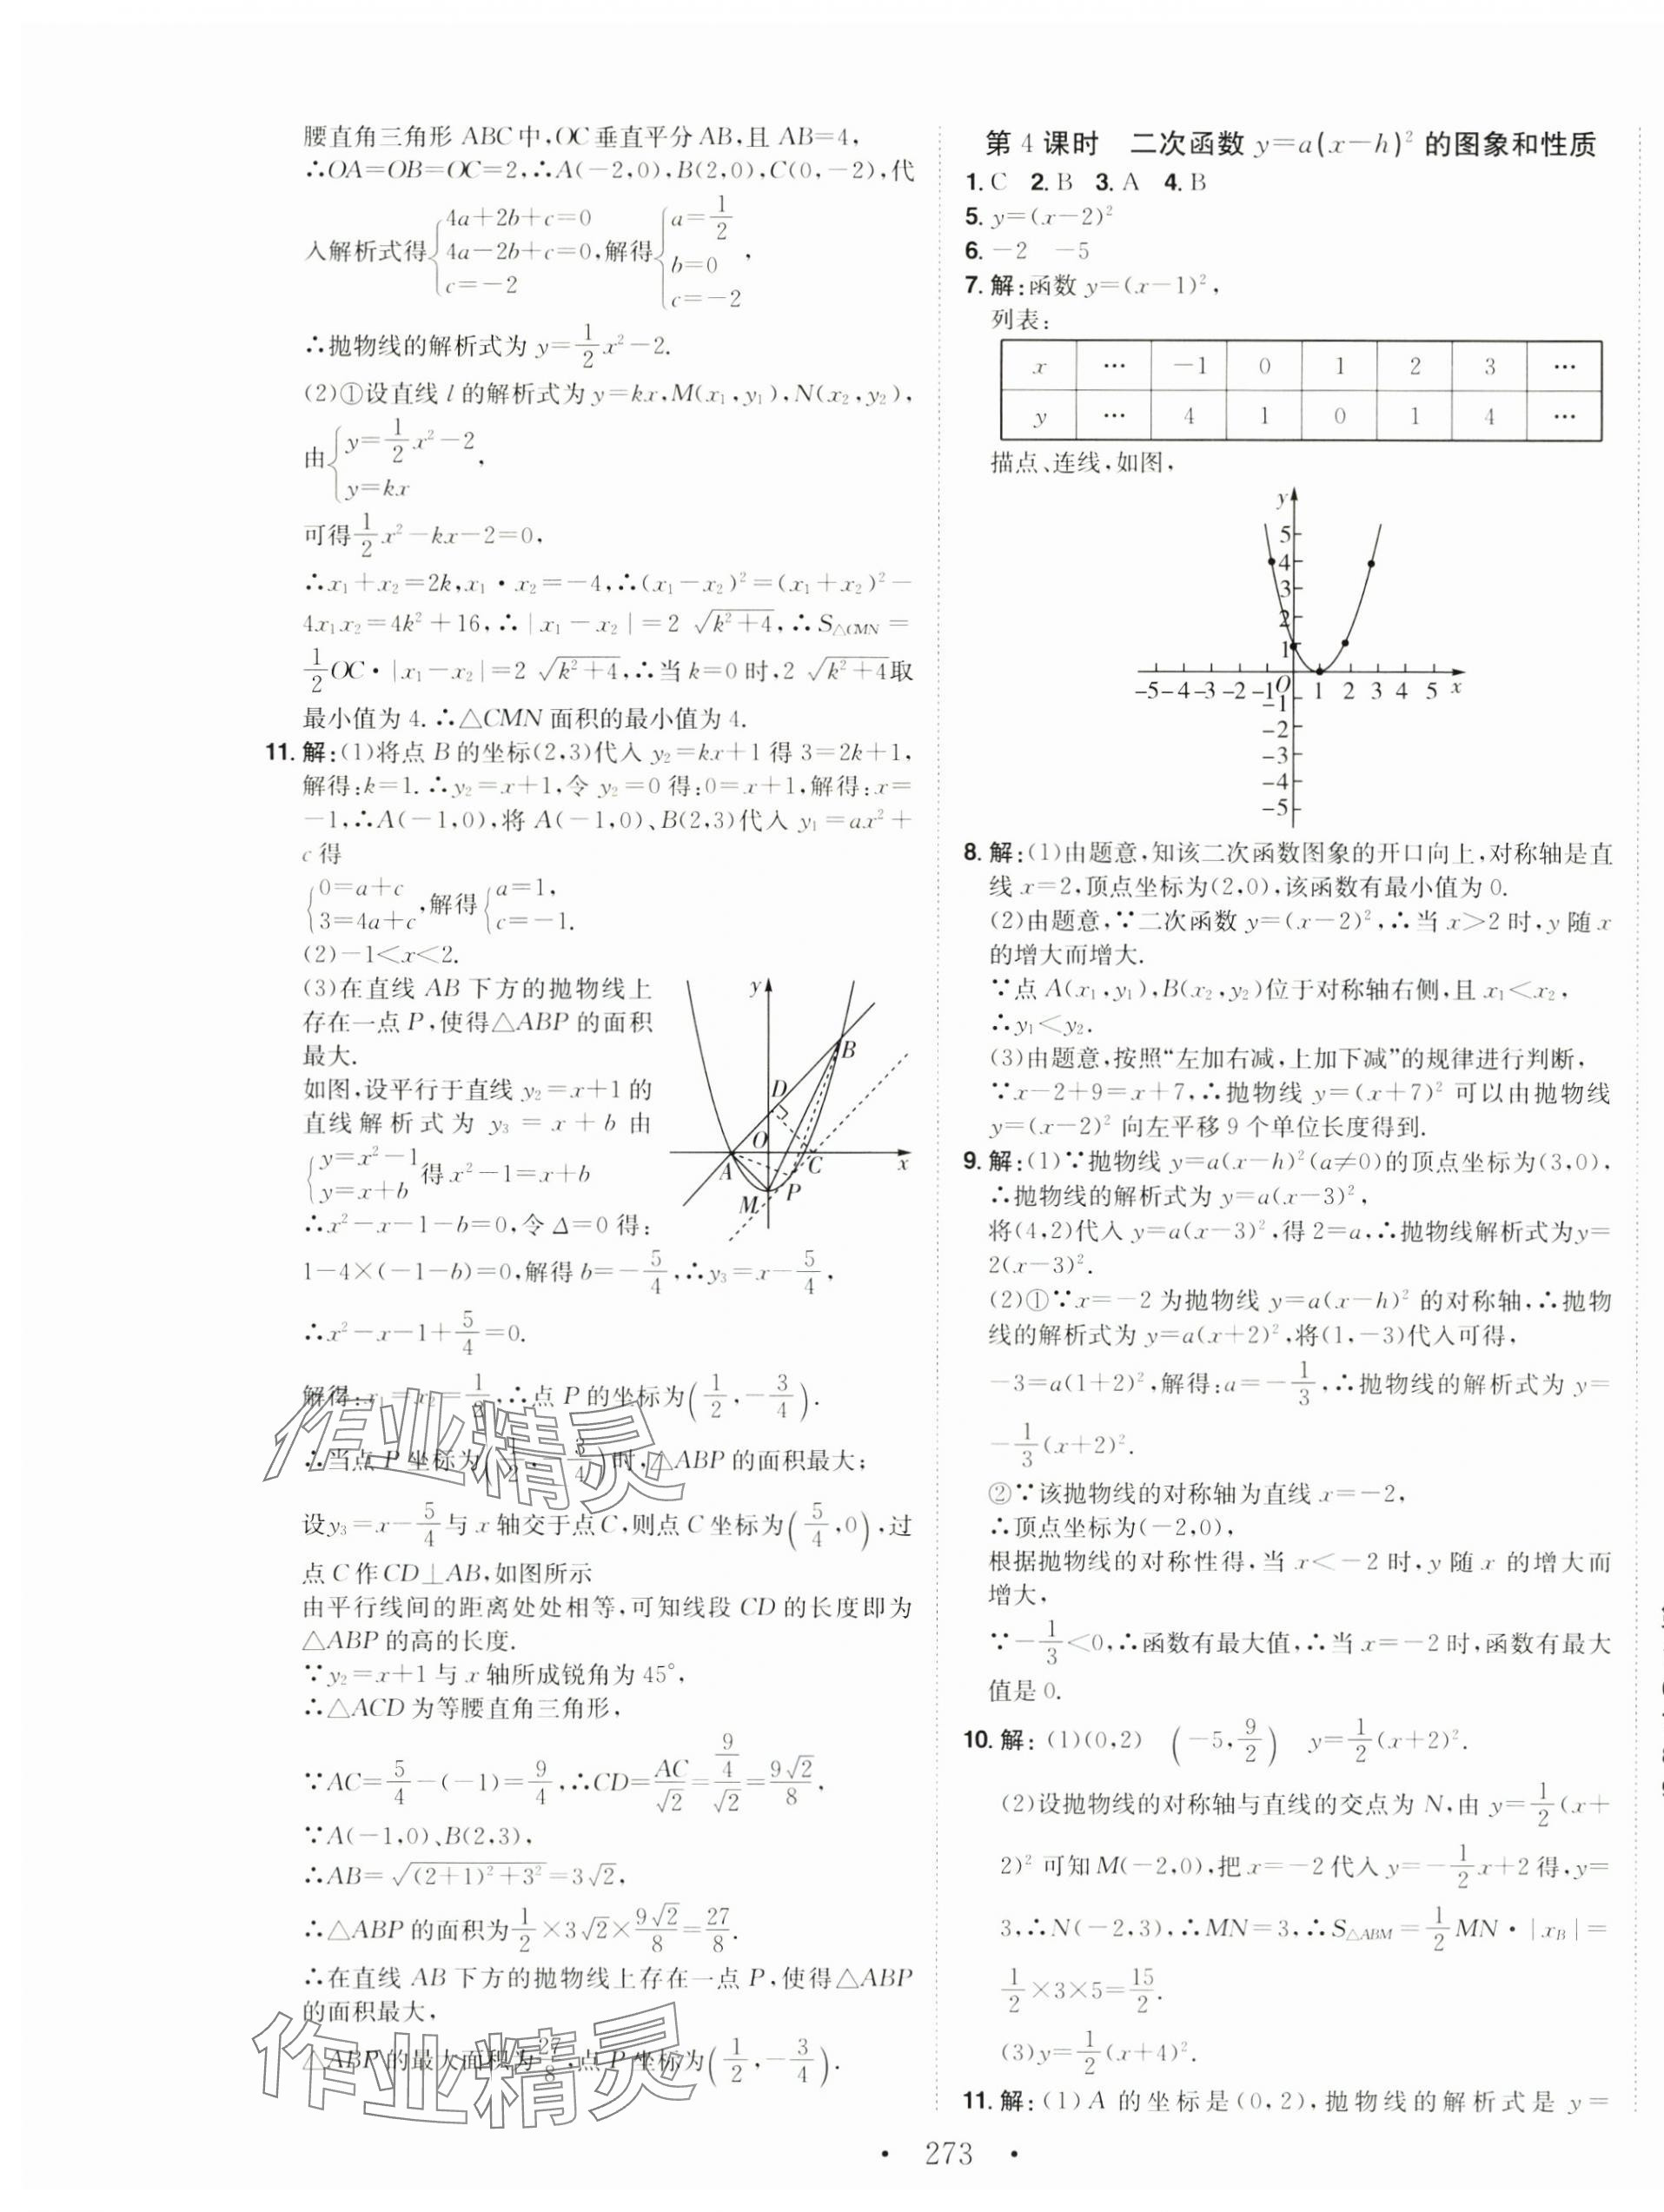 腰直角三角形 ABC 中,OC 垂直平分 AB,且 AB=4,
∴OA=OB=OC=2,∴A(-2,0),B(2,0),C(0,-2),代
入解析式得{4a+2b+c=0 4a-2b+c=0 c=-2,解得{a=1/2 b=0 c=-2,
∴抛物线的解析式为 y=1/2x²-2.
(2)①设直线 l 的解析式为 y=kx,M(x₁,y₁),N(x₂,y₂),
由{y=1/2x²-2 y=kx,
可得1/2x²-kx-2=0,
∴x₁+x₂=2k,x₁·x₂=-4,∴(x₁-x₂)²=(x₁+x₂)²-
4x₁x₂=4k²+16,∴|x₁-x₂|=2√(k²+4),∴S△CMN=
1/2OC·|x₁-x₂|=2√(k²+4),∴当 k=0 时,2√(k²+4)取
最小值为 4.∴△CMN 面积的最小值为 4.
11. 解:(1)将点 B 的坐标(2,3)代入 y₂=kx+1 得 3=2k+1,
解得:k=1.∴y₂=x+1,令 y₂=0 得:0=x+1,解得:x=
-1,∴A(-1,0),将 A(-1,0)、B(2,3)代入 y₁=ax²+
c 得
{0=a+c 3=4a+c,解得{a=1, c=-1.
(2)-1<x<2.
(3)在直线 AB 下方的抛物线上
存在一点 P,使得△ABP 的面积
最大.
如图,设平行于直线 y₂=x+1 的
直线解析式为 y₃=x+b 由
{y=x²-1 y=x+b 得 x²-1=x+b
∴x²-x-1-b=0,令 Δ=0 得:
1-4×(-1-b)=0,解得 b=-5/4,∴y₃=x-5/4,
∴x²-x-1+5/4=0.
解得:x₁=x₂=1/2,∴点 P 的坐标为(1/2,-3/4).
∴当点 P 坐标为(1/2,-3/4)时,△ABP 的面积最大;
设y₃=x-5/4与 x 轴交于点C,则点 C 坐标为(5/4,0),过
点 C 作 CD⊥AB,如图所示
由平行线间的距离处处相等,可知线段 CD 的长度即为
△ABP 的高的长度.
∵y₂=x+1 与 x 轴所成锐角为 45°,
∴△ACD 为等腰直角三角形,
∵AC=5/4-(-1)=9/4,∴CD=AC/√2=(9/4)/√2=9√2/8,
∵A(-1,0)、B(2,3),
∴AB=√((2+1)²+3²)=3√2,
∴△ABP 的面积为1/2×3√2×9√2/8=27/8.
∴在直线 AB 下方的抛物线上存在一点 P,使得△ABP
的面积最大,
△ABP 的最大面积为27/8,点 P 坐标为(1/2,-3/4).
y
B
D
O
A
C
x
M
P
第 4 课时 二次函数 y=a(x-h)² 的图象和性质
1. C 2. B 3. A 4. B
5. y=(x-2)²
6. -2 -5
7. 解:函数 y=(x-1)²,
列表:
x … -1 0 1 2 3 …
y … 4 1 0 1 4 …
描点、连线,如图,
y
5
4
3
2
1
-5 -4 -3 -2 -1 O 1 2 3 4 5 x
-1
-2
-3
-4
-5
8. 解:(1)由题意,知该二次函数图象的开口向上,对称轴是直
线 x=2,顶点坐标为(2,0),该函数有最小值为 0.
(2)由题意,∵二次函数 y=(x-2)²,∴当 x>2 时,y 随 x
的增大而增大.
∵点 A(x₁,y₁),B(x₂,y₂)位于对称轴右侧,且 x₁<x₂,
∴y₁<y₂.
(3)由题意,按照“左加右减,上加下减”的规律进行判断,
∵x-2+9=x+7,∴抛物线 y=(x+7)² 可以由抛物线
y=(x-2)² 向左平移 9 个单位长度得到.
9. 解:(1)∵抛物线 y=a(x-h)²(a≠0)的顶点坐标为(3,0),
∴抛物线的解析式为 y=a(x-3)²,
将(4,2)代入 y=a(x-3)²,得 2=a,∴抛物线解析式为y=
2(x-3)².
(2)①∵x=-2 为抛物线 y=a(x-h)² 的对称轴,∴抛物
线的解析式为 y=a(x+2)²,将(1,-3)代入可得,
-3=a(1+2)²,解得:a=-1/3,∴抛物线的解析式为 y=
-1/3(x+2)².
②∵该抛物线的对称轴为直线 x=-2,
∴顶点坐标为(-2,0),
根据抛物线的对称性得,当 x<-2 时,y 随 x 的增大而
增大,
∵-1/3<0,∴函数有最大值,∴当 x=-2 时,函数有最大
值是 0.
10. 解:(1)(0,2) (-5,9/2) y=1/2(x+2)².
(2)设抛物线的对称轴与直线的交点为 N,由 y=1/2(x+
2)² 可知 M(-2,0),把 x=-2 代入 y=-1/2x+2 得,y=
3,∴N(-2,3),∴MN=3,∴S△ABM=1/2MN·|xB|=
1/2×3×5=15/2.
(3)y=1/2(x+4)².
11. 解:(1)A 的坐标是(0,2),抛物线的解析式是 y=
· 273 ·
作业精灵
作业精灵